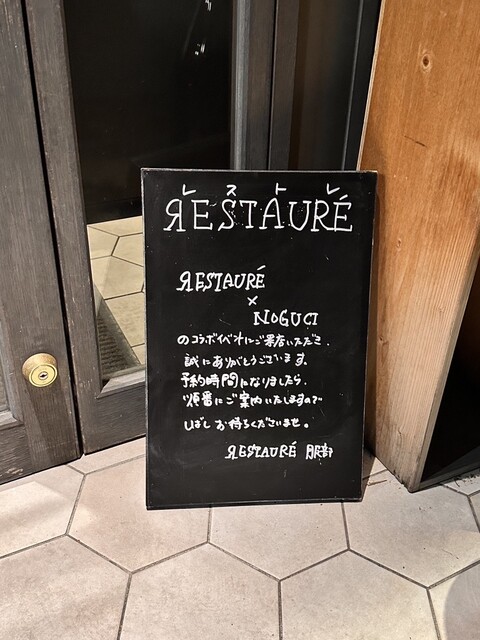 レストレ
ЯESTAURÉ
ЯESTAURÉ
×
NOGUCI
のコラボイベントにご来店いただき、
誠にありがとうございます。
予約時間になりましたら、
順番にご案内いたしますので
しばしお待ちくださいませ。
ЯESTAURÉ 服部